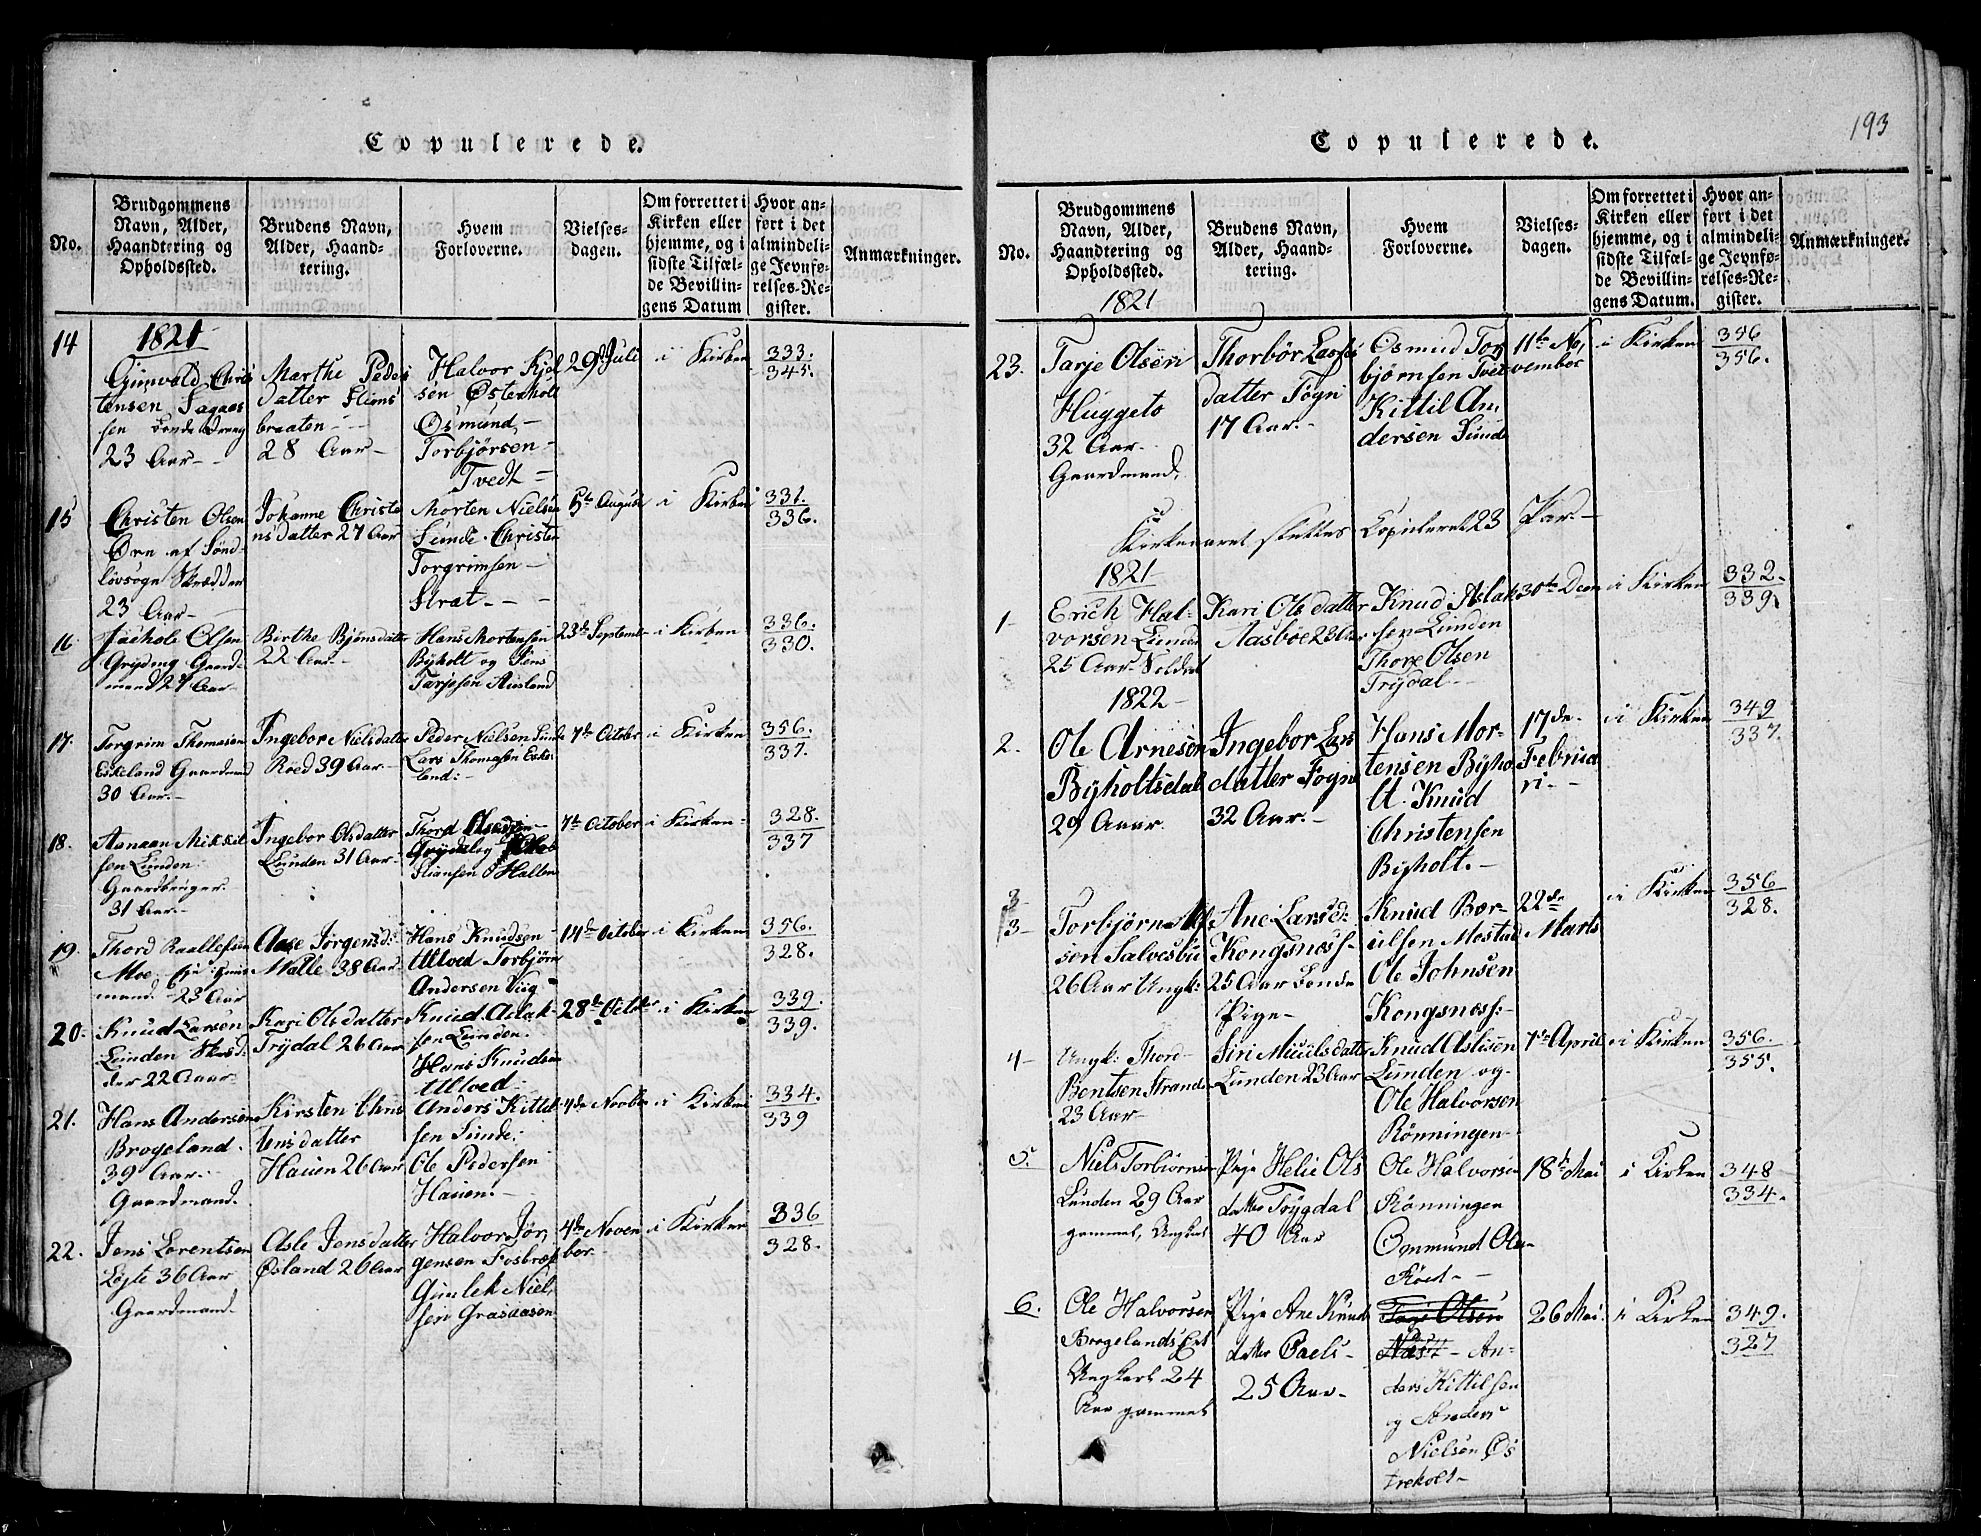 Copulerede.
No.
Brudgommens
Navn, Alder,
Haandtering og
Opholdssted.
Brudens Navn,
Alder, Haand-
tering.
Hvem
Forloverne.
Vielses-
dagen.
Om forrettet i
Kirken eller
hjemme, og i
sidste Tilfæl-
de Bevillin-
gens Datum
Hvor an-
ført i det
almindeli-
ge Jevnfø-
relses-Re-
gister.
Anmærkninger.
1821
14
Gunvald Chris
tensen
sen Bonde Dreng
23 Aar-
Marthe Peders
datter Slims
braaten -
28 Aar -
Halvor Kjel
sen Østerholt
Osmund -
Torbjørsen -
Tvedt -
29de Juli
i Kirken
333.
345.
15
Christen Olsen
Øre af Sønd-
lövsogn Skrædder
23 Aar -
Johanne Christe
nsdatter 27 Aar
Morten Nielsen
Sunde. Christen
Torgrimsen -
Strat. - -
5te August
i Kirken
331.
336.
16
Olsen
Grydeng Gaard-
mand 27 Aar
Birthe Bjönsdatter
22 Aar. -
Hans Mortensen
Byholt og Jens
Tarjesen Ausland
23de Septembr
i Kirken
336.
330.
17.
Torgrim Thomesen
Eskeland Gaardmand
30 Aar. -
Ingebor Nielsdatter
Roed 39 Aar -
Peder Nielsen Sunde
Lars Thomasen Eske
land: -
7de October
i Kirken
356.
337.
18.
Aanaan Mikkel
sen Lunden.
Gaardbruger.
31 Aar. -
Ingebor Olsdatter
Lunden 31 Aar -
Thord
Trydal og
Stiansen Hallen
7de October
i Kirken
328.
337
19.
Thord Raallefsen
Moe.
mand. 23 Aar
Aase Jørgensd:
Walle 38 Aar
Hans Knudsen -
Ulltved Torbjørn
Andersen Viig
14de October
i Kirken
356.
328.
20.
Knud Larsen
Lunden Skræd:
der 22 Aaar.
Kari Olsdatter
Trydal 26 Aar
Knud Aslak-
sen Lunden.
Hans Knudsen
Ulltved.
28de Octobr
i Kirken
339.
339.
21.
Hans Andersen
Brogeland.
39 Aar. -
Gaardmand.
Kirsten Chris
tensdatter
Hauen 26 Aar
Anders Kittel
sen Sunde:
Ole Pedersen
Hauen. -
4de Novbr
i Kirken
334.
339
22.
Jens Lorentsen
Løjte 36 Aar
Gaardmand.
Asle Jensdatter
Øsland 26 Aar
Halvor Jør,
gensen Fosbræk
Gunlek Niel,
sen Grasaasen
4de Novem
ber. -
i Kirken
336
328.
Copulerede.
193
No.
Brudgommens
Navn, Alder,
Haandtering og
Opholdssted.
Brudens Navn,
Alder, Haand-
tering.
Hvem
Forloverne.
Vielses-
dagen.
Om forrettet i
Kirken eller
hjemme, og i
sidste Tilfæl-
de Bevillin-
gens Datum.
Hvor an-
ført i det
almindeli-
ge Jevnfø-
relses-Re-
gister.
Anmærkninger.
1821
23.
Tarje Olsen
Huggeto
32 Aar.
Gaardmand.
Thorbör Lars
datter Fogn
17 Aar. -
Osmud Tor
björnsen Tvet
Kittil An,
dersen Sunde
11te No,
vember
i Kirken
356
356.
Kirkeaaret sluttes Copuleret 23 Par. -
1821
1-
Erich Hal-
vorsen Lunden
25 Aar. Soldat
Kari Olsdatter
Aasböe 23 Aar
Knud Aslak
sen Lunden
Thore Olsen
Trydal -
30te Decm
i Kirken
332.
339.
1822 -
2.
Ole Arnesen
Byholtsdal
29 Aaar.
Ingebor Lars
datter Fogn
32 Aar. -
Hans Mor-
tensen Byho
lt. Knud
Christensen
Byholt. -
17de
Februa
ri. -
i Kirken
349
337.
3
3-
Torbjørn
son Salvesbu
26 Aar Ungk:
Ane Larsd:
Kongsnæss-
25 Aar Bonde
Pige -
Knud Bor-
ulfsen Mostad
Ole Johnsen
Kongsnæss: -
22de
Marts
i Kirken
356
328.
4-
Ungk: Thord -
Bentsen Strande
23 Aar -
Siri Mikkelsdatter
Lunden 23 Aar
Knud Aslisen
Lunden og -
Ole Halvorsen
Rönningen -
7de April
i Kirken
356.
355.
5.
Niels Torbiørnsen
Lunden 29 Aar
gammel, Ungkarl
Pige Helie Ols
datter Trygdal
40 Aar
Ole Halvorsen
Rönningen
Ommund Ols-
Röed -
18de Mai
i Kirken
348
334.
6.
Ole Halvorsen
Brogelands
Ungkarl 24
Aar gammel
Pige Ane Knuds
datter
25 Aar -
Olsen
- An-
ders Kittilsen
og Anders
Nielsen Øs
trekolt -
26 Mai.
i Kirken
349.
327